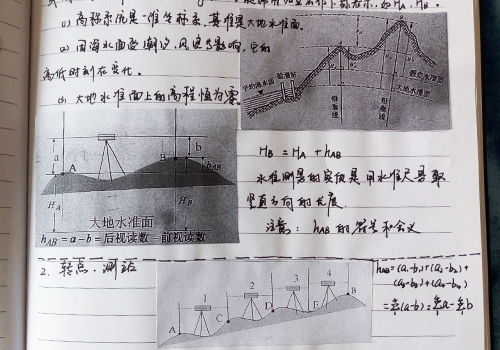 (1) 高程系统是一维坐标系，其基准是大地水准面。
(2) 因海水面受潮汐、风浪等影响，它的
高低时刻在变化。
(3) 大地水准面上的高程恒为零。
平均海水面
验潮站
铅垂线
铅垂线
假定水准面
大地水准面
a
b
A
B
hAB
HA
HB
大地水准面
hAB = a－b = 后视读数－前视读数
HB = HA + hAB
水准测量的实质是用水准尺量取
竖直方向的长度.
注意: hAB 的符号和含义
2. 转点、测站
1
2
3
4
A
C
D
E
B
hAB = (a1-b1)+(a2-b2)+
(a3-b3)+(a4-b4)
=Σ(a-b)=Σa-Σb